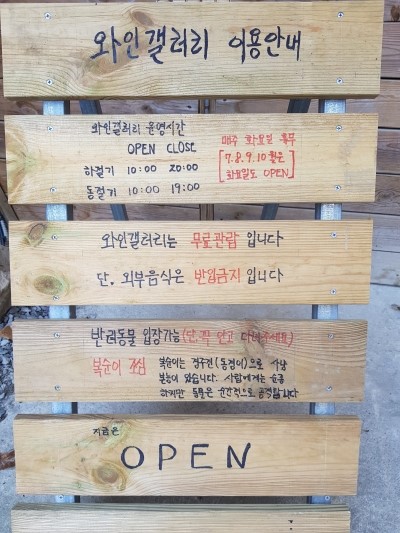 와인갤러리 이용안내
와인갤러리 운영시간
OPEN CLOSE
하절기 10:00 20:00
동절기 10:00 19:00
매주 화요일 휴무
[7.8.9.10월은
화요일도 OPEN]
와인갤러리는 무료관람 입니다
단, 외부음식은 반입금지 입니다
반려동물 입장가능 (단, 꼭 안고 다녀주세요)
복순이 조심
복순이는 경주견(동경이)으로 사냥
본능이 있습니다. 사람에게는 순종
하지만 동물은 순간적으로 공격합니다
지금은
OPEN